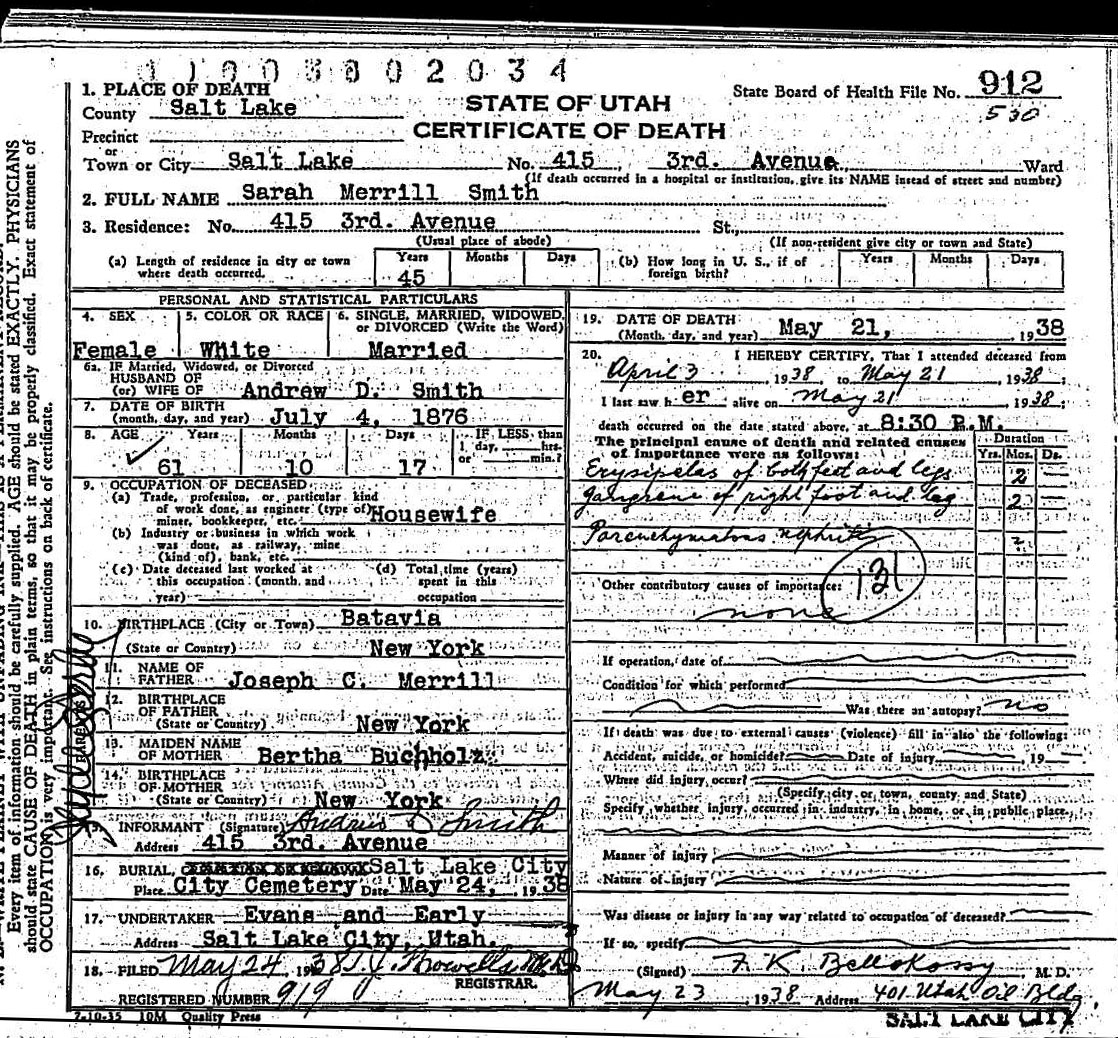 1 1 0 0 3 8 0 2 0 3 4
1. PLACE OF DEATH
County Salt Lake
Precinct
or
Town or City Salt Lake No. 415 3rd. Avenue Ward
(If death occurred in a hospital or institution, give its NAME instead of street and number)
STATE OF UTAH
CERTIFICATE OF DEATH
State Board of Health File No. 912
530
2. FULL NAME Sarah Merrill Smith
3. Residence: No. 415 3rd. Avenue St.,
(Usual place of abode) (If non-resident give city or town and State)
(a) Length of residence in city or town where death occurred. Years 45 Months Days
(b) How long in U. S., if of foreign birth? Years Months Days
PERSONAL AND STATISTICAL PARTICULARS
4. SEX 5. COLOR OR RACE 6. SINGLE, MARRIED, WIDOWED, or DIVORCED (Write the Word)
Female White Married
6a. IF Married, Widowed, or Divorced
HUSBAND OF
(or) WIFE OF Andrew D. Smith
7. DATE OF BIRTH
(month, day, and year) July 4, 1876
8. AGE Years Months Days IF LESS than
1 day, hrs.
or min.?
61 10 17
9. OCCUPATION OF DECEASED
(a) Trade, profession, or particular kind
of work done, as engineer (type of)
miner, bookkeeper, etc. Housewife
(b) Industry or business in which work
was done, as railway, mine
(kind of), bank, etc.
(c) Date deceased last worked at
this occupation (month and
year)
(d) Total time (years)
spent in this
occupation
10. BIRTHPLACE (City or Town) Batavia
(State or Country) New York
11. NAME OF
FATHER Joseph C. Merrill
12. BIRTHPLACE
OF FATHER
(State or Country) New York
13. MAIDEN NAME
OF MOTHER Bertha Buchholz
14. BIRTHPLACE
OF MOTHER
(State or Country) New York
PARENTS
15. INFORMANT (Signature) Andrew D Smith
Address 415 3rd. Avenue
16. BURIAL, Salt Lake City
Place City Cemetery Date May 24, 1938
17. UNDERTAKER Evans and Early
Address Salt Lake City, Utah.
18. FILED May 24, 1938 T. J. Howells, M.D.
REGISTRAR.
REGISTERED NUMBER 919
7-10-35 10M Quality Press
19. DATE OF DEATH
(Month, day, and year) May 21, 1938
20. I HEREBY CERTIFY, That I attended deceased from
April 3, 1938, to May 21, 1938;
I last saw her alive on May 21 1938;
death occurred on the date stated above, at 8:30 P.M.
The principal cause of death and related causes
of importance were as follows:
Duration
Yrs. Mos. Ds.
Erysipelas of both feet and legs 2
gangrene of right foot and leg 2
Parenchymatous nephritis 2
131
Other contributory causes of importance:
none
If operation, date of
Condition for which performed
Was there an autopsy? no
If death was due to external causes (violence) fill in also the following:
Accident, suicide, or homicide? Date of injury 19
Where did injury occur?
(Specify city or town, county and State)
Specify whether injury occurred in industry, in home, or in public place.
Manner of injury
Nature of injury
Was disease or injury in any way related to occupation of deceased?
If so, specify
(Signed) F. K. Bellokossy, M. D.
May 23, 1938 Address 401 Utah Oil Bldg.
SALT LAKE CITY
Every item of information should be carefully supplied. AGE should be stated EXACTLY. PHYSICIANS
should state CAUSE OF DEATH in plain terms, so that it may be properly classified. Exact statement of
OCCUPATION is very important. See instructions on back of certificate.